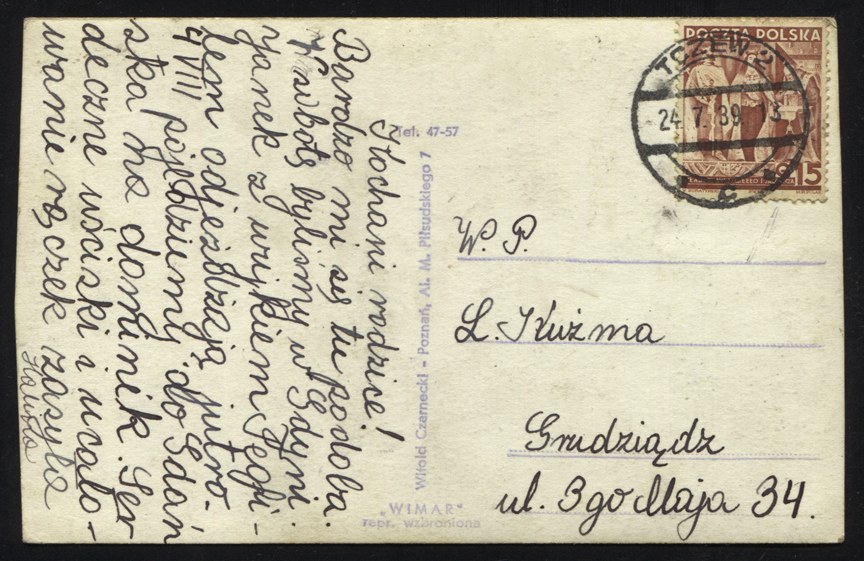 Kochani rodzice!
Bardzo mi się tu podoba.
W sobotę byliśmy w Gdyni.
Janek z wujkiem
lem odjeżdzają jutro.
4 VIII pojedziemy do Gdań
ska na dominik. Ser
deczne uściski i ucało-
wanie rączek zasyła
Tel. 47-57
Witold Czarnecki - Poznań, Al. M. Piłsudskiego 7
"WIMAR"
repr. wzbroniona
POCZTA POLSKA
15
TCZEW 2
24.7.39.13
c
W. P.
L. Kuźma
Grudziądz
ul. 3go Maja 34.